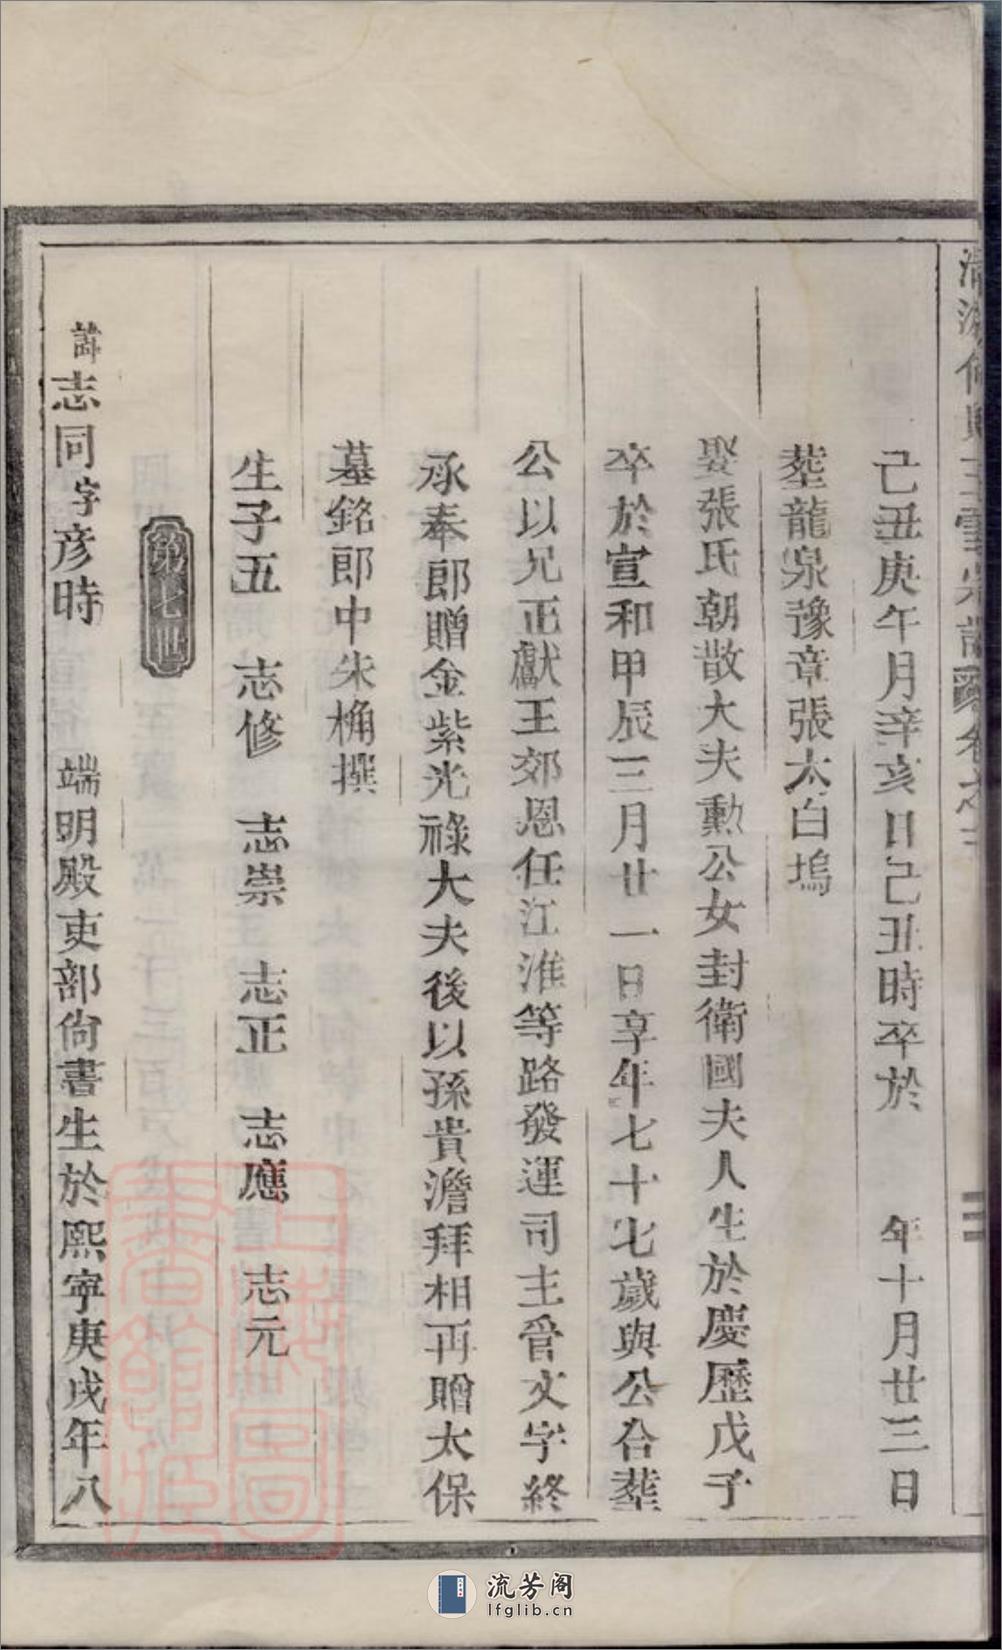 己丑庚午月辛亥日己丑時卒於　年十月廿三日
塟龍泉豫章張太白塢
娶張氏朝散大夫勲公女封衛國夫人生於慶歷戊子
卒於宣和甲辰三月廿一日享年七十七歲與公合塟
公以兄正獻王郊恩任江淮等路發運司主管文字終
承奉郎贈金紫光祿大夫後以孫貴澹拜相再贈太保
墓銘郎中朱桷撰
生子五　志修　志崇　志正　志應　志元
第七世
諱志同字彦時　端明殿吏部尙書生於熙寧庚戌年八
上海圖書館藏
流芳阁
lfglib.cn